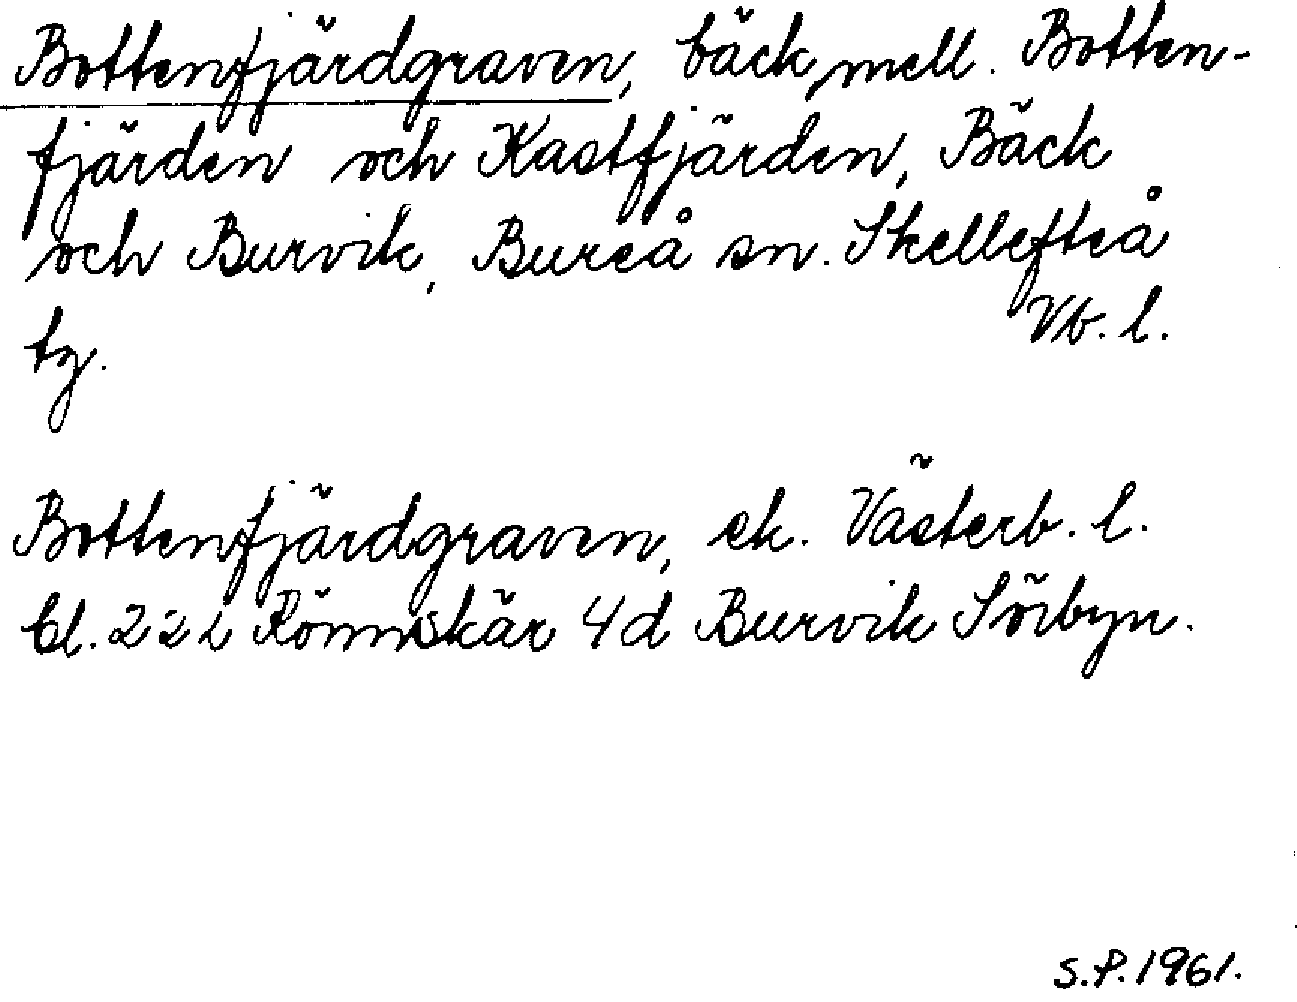 Bottenfjärdgraven, bäck mell. Botten-
fjärden och Kastfjärden, Bäck
och Burvik, Bureå sn. Skellefteå
tg. Vb. l.
Bottenfjärdgraven, ek. Västerb. l.
bl. 22 i Rönnskär 4d Burvik Sörbyn.
S.P. 1961.